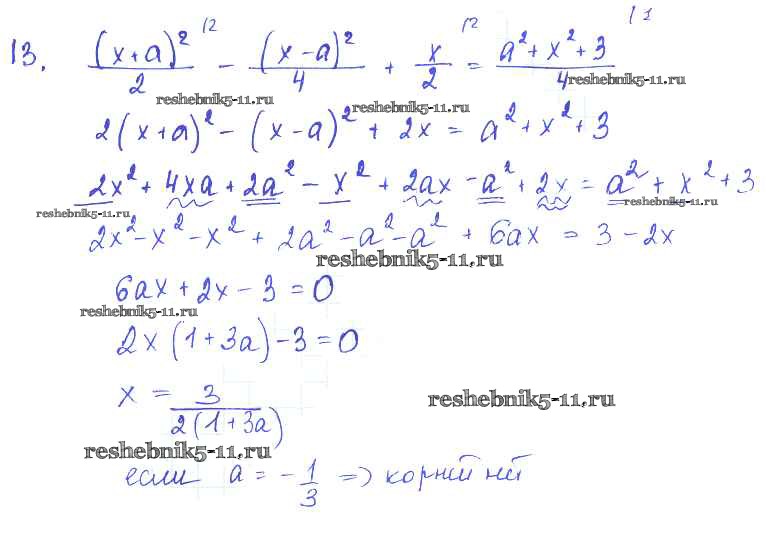 13. (x+a)²/2 |2 - (x-a)²/4 + x/2 |2 = (a²+x²+3)/4 |1
reshebnik5-11.ru reshebnik5-11.ru reshebnik5-11.ru
2(x+a)² - (x-a)² + 2x = a² + x² + 3
2x² + 4xa + 2a² - x² + 2ax - a² + 2x = a² + x² + 3
reshebnik5-11.ru reshebnik5-11.ru
2x² - x² - x² + 2a² - a² - a² + 6ax = 3 - 2x
reshebnik5-11.ru
6ax + 2x - 3 = 0
reshebnik5-11.ru
2x(1+3a) - 3 = 0
x = 3/(2(1+3a))
reshebnik5-11.ru
reshebnik5-11.ru
если a = -1/3 => корней нет